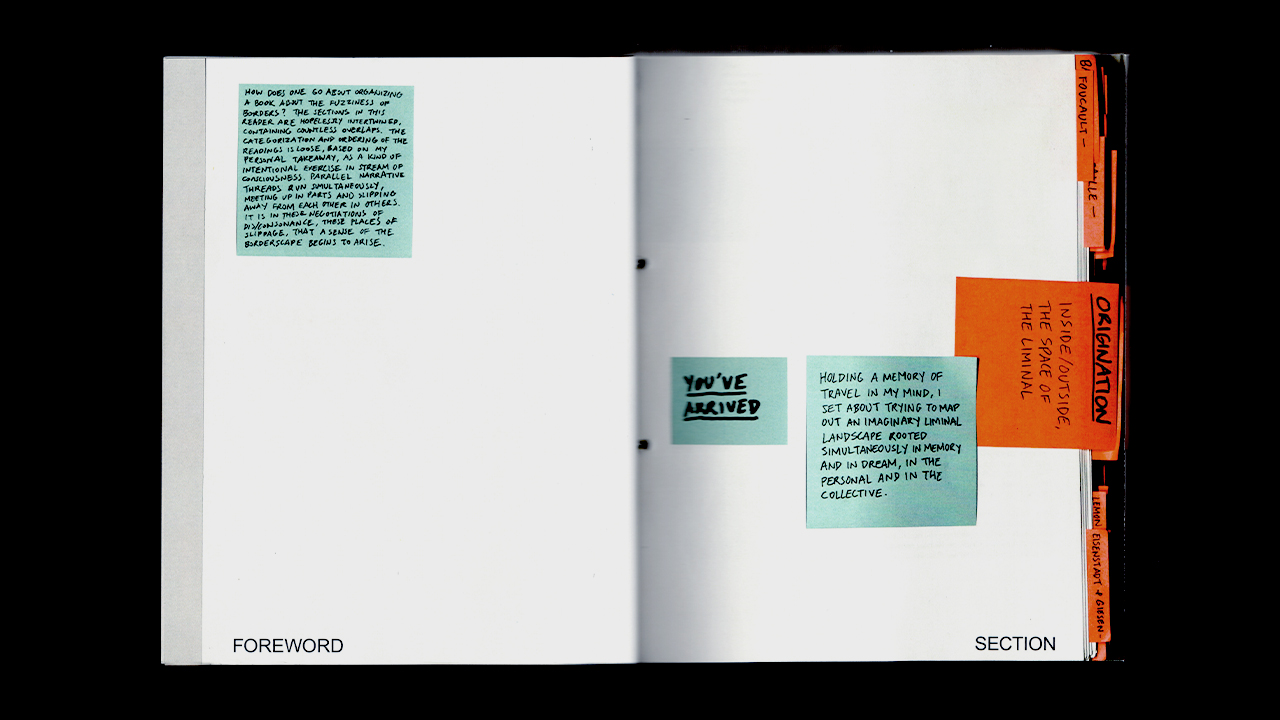 HOW DOES ONE GO ABOUT ORGANIZING
A BOOK ABOUT THE FUZZINESS OF
BORDERS? THE SECTIONS IN THIS
READER ARE HOPELESSLY INTERTWINED,
CONTAINING COUNTLESS OVERLAPS. THE
CATEGORIZATION AND ORDERING OF THE
READINGS IS LOOSE, BASED ON MY
PERSONAL TAKEAWAY, AS A KIND OF
INTENTIONAL EXERCISE IN STREAM OF
CONSCIOUSNESS. PARALLEL NARRATIVE
THREADS RUN SIMULTANEOUSLY,
MEETING UP IN PARTS AND SLIPPING
AWAY FROM EACH OTHER IN OTHERS.
IT IS IN THESE NEGOTIATIONS OF
DIS/CONSONANCE, THESE PLACES OF
SLIPPAGE, THAT A SENSE OF THE
BORDERSCAPE BEGINS TO ARISE.
FOREWORD
YOU'VE
ARRIVED
HOLDING A MEMORY OF
TRAVEL IN MY MIND, I
SET ABOUT TRYING TO MAP
OUT AN IMAGINARY LIMINAL
LANDSCAPE ROOTED
SIMULTANEOUSLY IN MEMORY
AND IN DREAM, IN THE
PERSONAL AND IN THE
COLLECTIVE.
ORIGINATION
INSIDE/OUTSIDE,
THE SPACE OF
THE LIMINAL
FOUCAULT —
LEMON
EISENSTADT & GIESEN -
SECTION